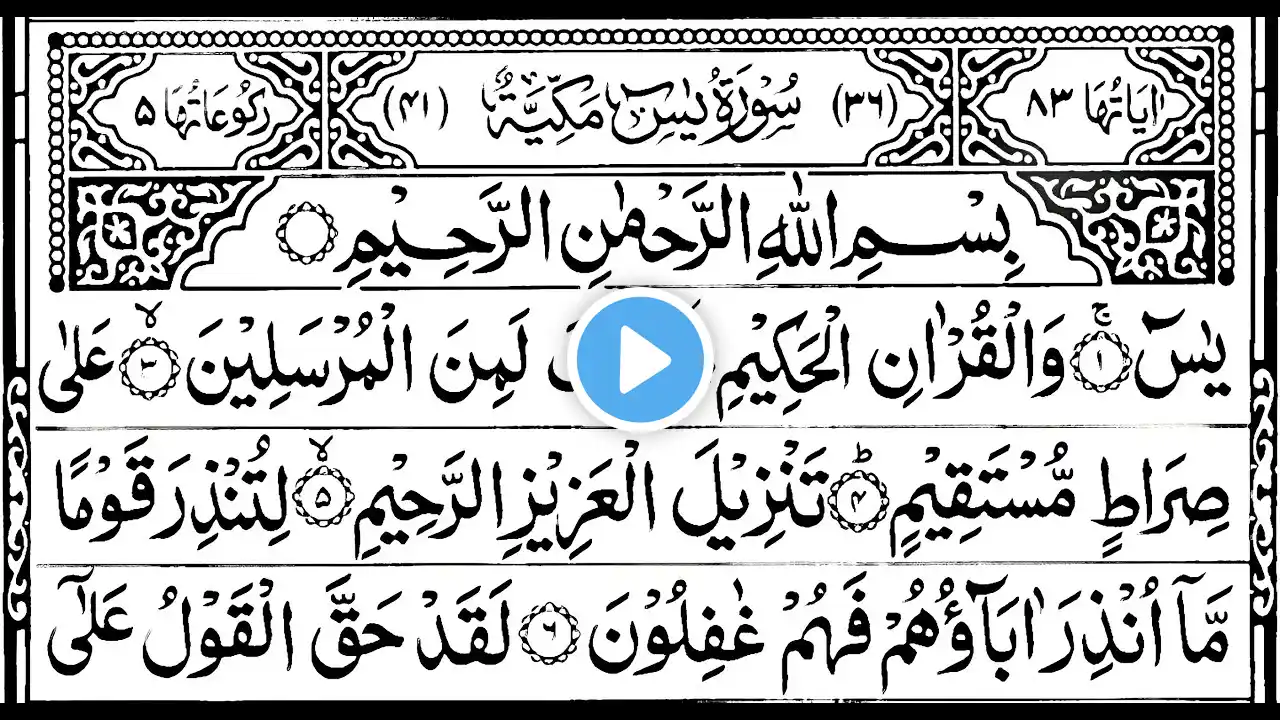 اٰيَاتُهَا ٨٣ (٣٦) سُوْرَةُ يٰسٓ مَكِّيَّةٌ (٤١) رُكُوْعَاتُهَا ٥
بِسْمِ اللّٰهِ الرَّحْمٰنِ الرَّحِيْمِ
يٰسٓ ۚ ١ وَالْقُرْاٰنِ الْحَكِيْمِ لَمِنَ الْمُرْسَلِيْنَ ۙ ٣ عَلٰى
صِرَاطٍ مُّسْتَقِيْمٍ ؕ ۴ تَنْزِيْلَ الْعَزِيْزِ الرَّحِيْمِ ۙ ۵ لِتُنْذِرَ قَوْمًا
مَّاۤ اُنْذِرَ اٰبَآؤُهُمْ فَهُمْ غٰفِلُوْنَ ٦ لَقَدْ حَقَّ الْقَوْلُ عَلٰۤى